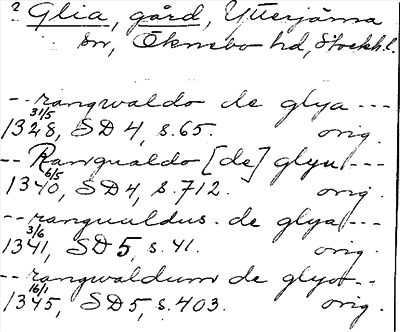 ? Glia, gård, Ytterjärna
sn, Öknebo hd, Stockh.l.
-- rangwaldo de glya ---
1328 31/5, SD 4, s. 65. orig.
-- Rangualdo [de] glyu ---
1340 6/5, SD 4, s. 712. orig.
-- ranguuldus. de glya ---
1341 3/6, SD 5, s. 41. orig.
-- rangwaldum de glya --
1345 16/1, SD 5, s. 403. orig.